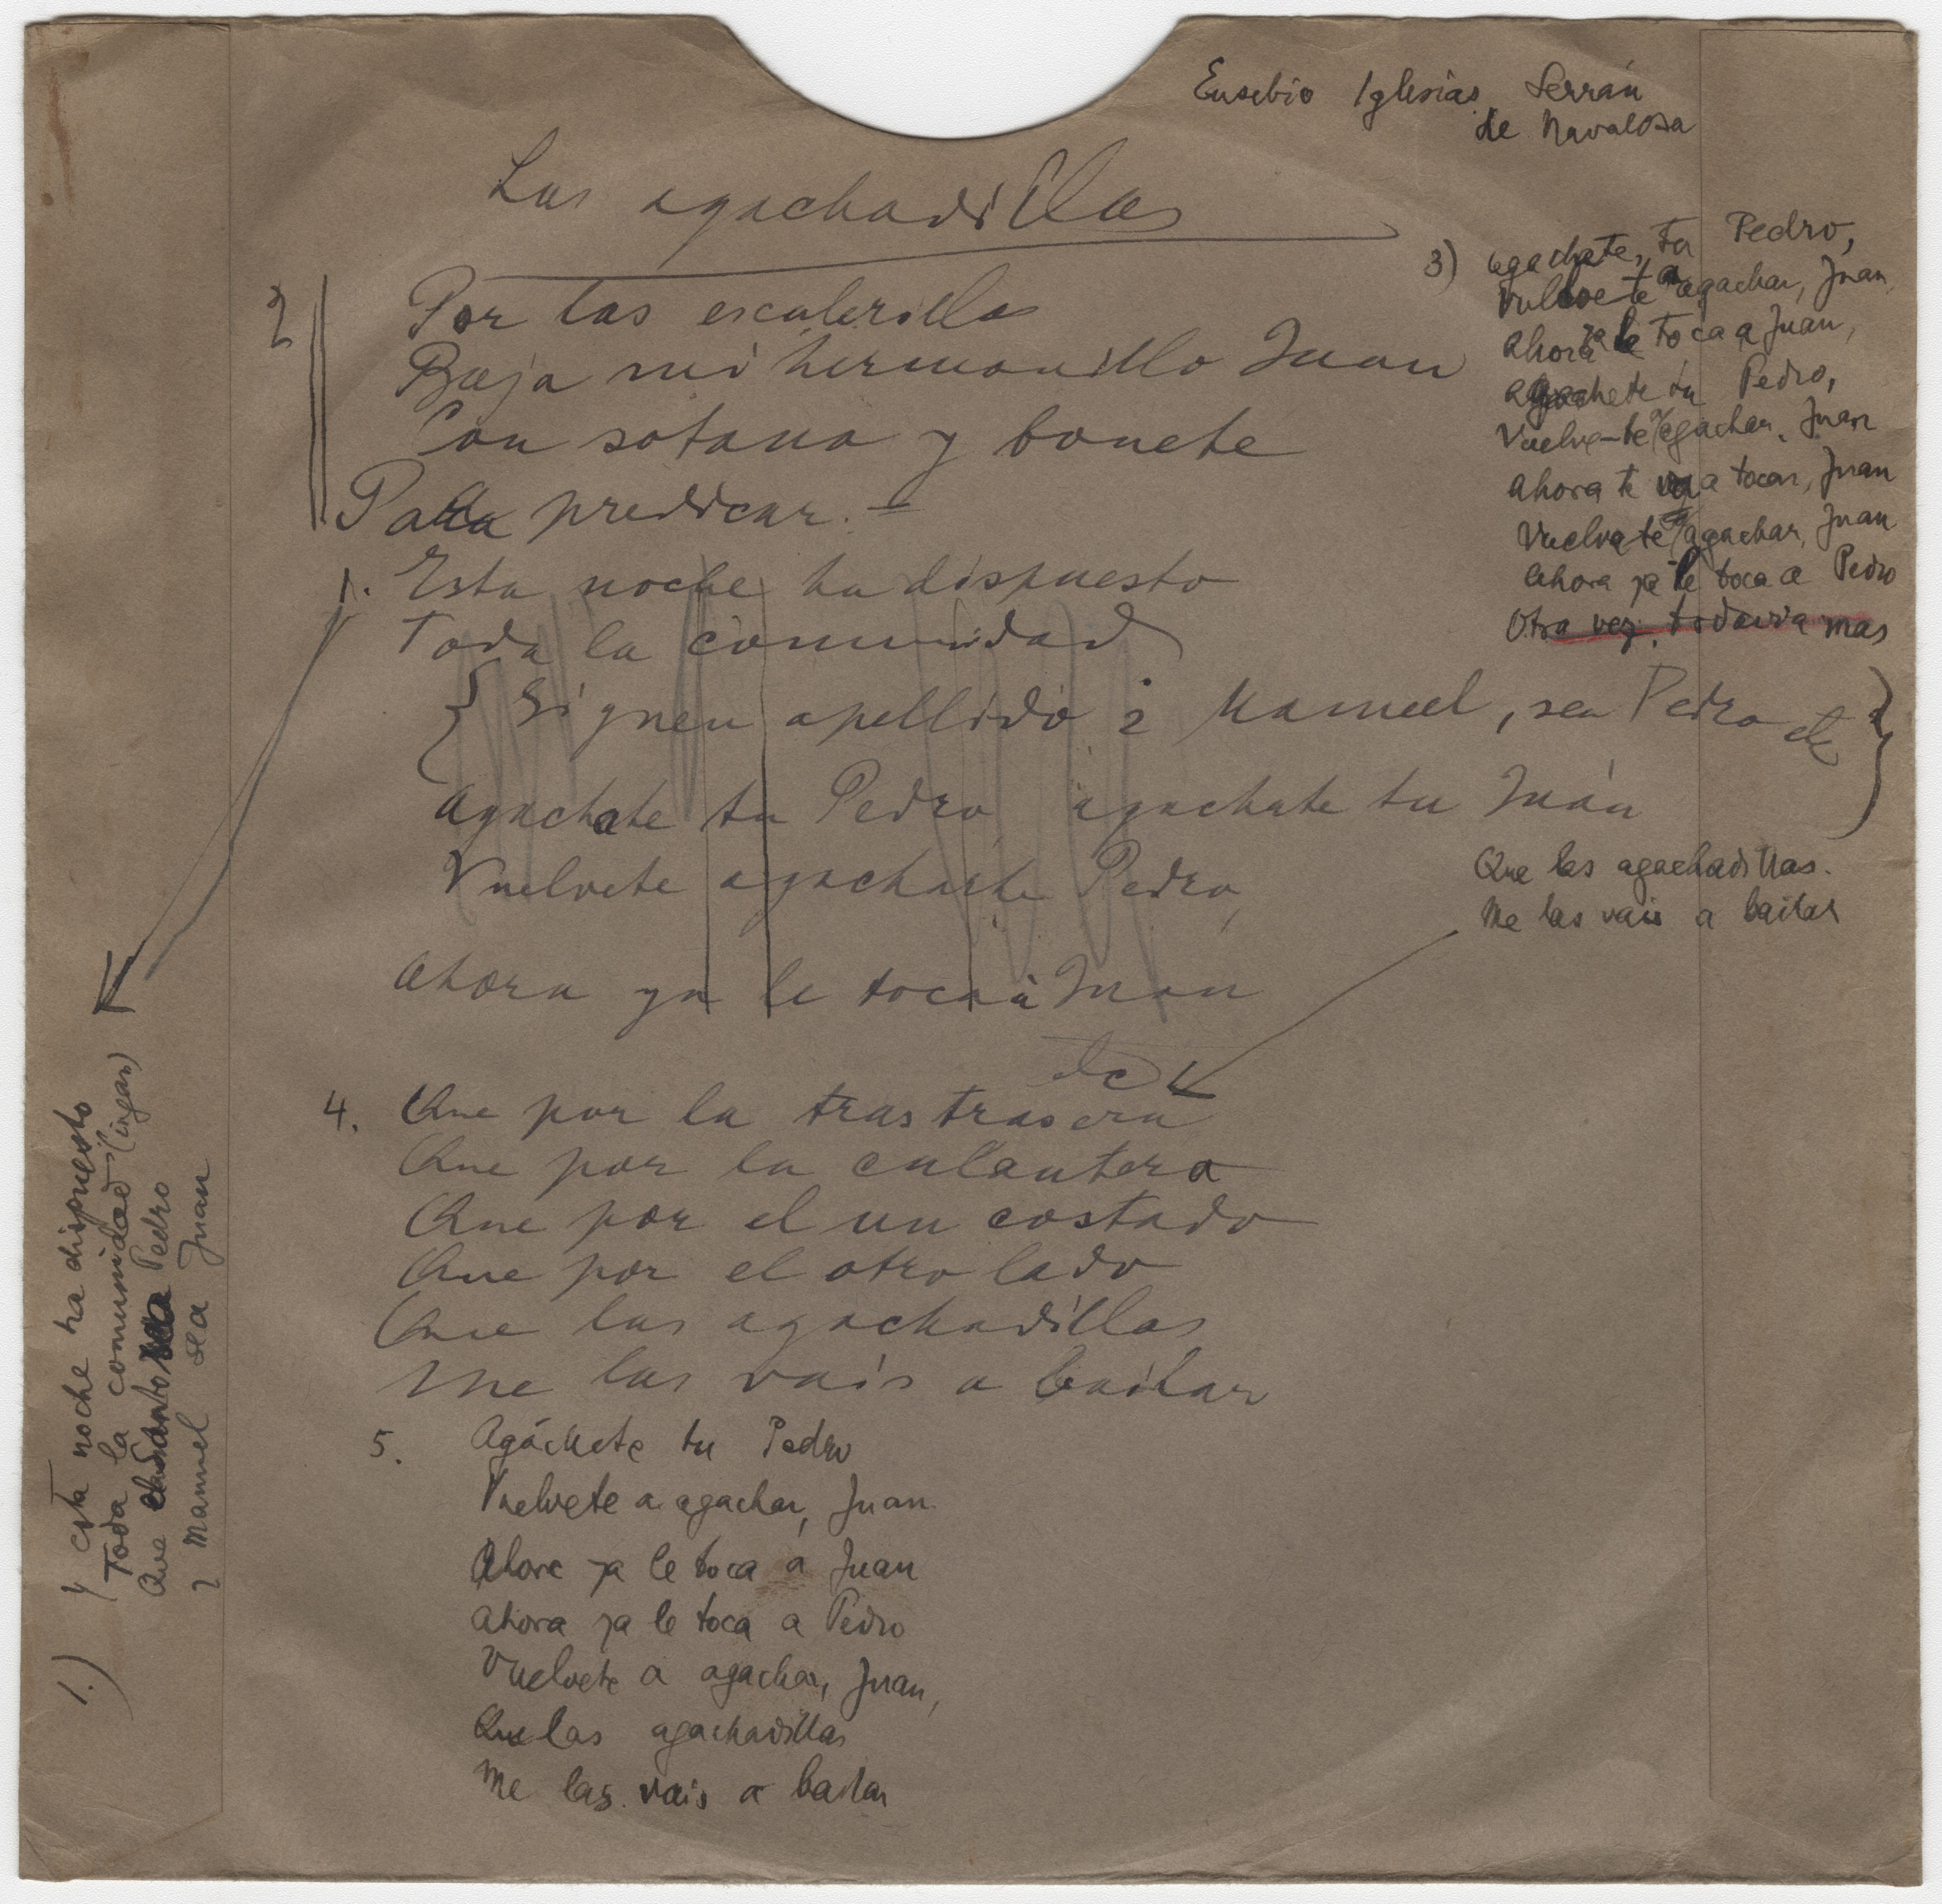 Eusebio Iglesias Serrán
de Navalosa
Las agachadillas
2
Por las escalerillas
Baja mi hermanillo Juan
Con sotana y bonete
Para predicar.=
1. Esta noche ha dispuesto
Toda la comunidad
{ Siguen apellido i Manuel, sea Pedro etc }
Agachate tu Pedro agachate tu Juán
Vuelvete agachar Pedro,
Ahora ya le toca à Juan
etc
3) agachate, tu Pedro,
Vuelvete a agachar, Juan,
Ahora ya le toca a Juan,
agachete tu Pedro,
Vuelve-te a agachar, Juan
Ahora te va a tocar, Juan
Vuelvate a agachar, Juan
Ahora ya le toca a Pedro
Otra vez, todavia mas
Que las agachadillas.
Me las vais a bailar
4. Que por la trastrasera
Que por la culantera
Que por el un costado
Que por el otro lado
Que las agachadillas
Me las vais a bailar
5. Agáchete tu Pedro
Vuelvete a agachar, Juan
Ahora ya le toca a Juan
Ahora ya le toca a Pedro
Vuelvete a agachar, Juan,
Que las agachadillas
Me las vais a bailar
1.) Y esta noche ha dispuesto
Toda la comunidad
Que Pedro
Manuel sea Juan